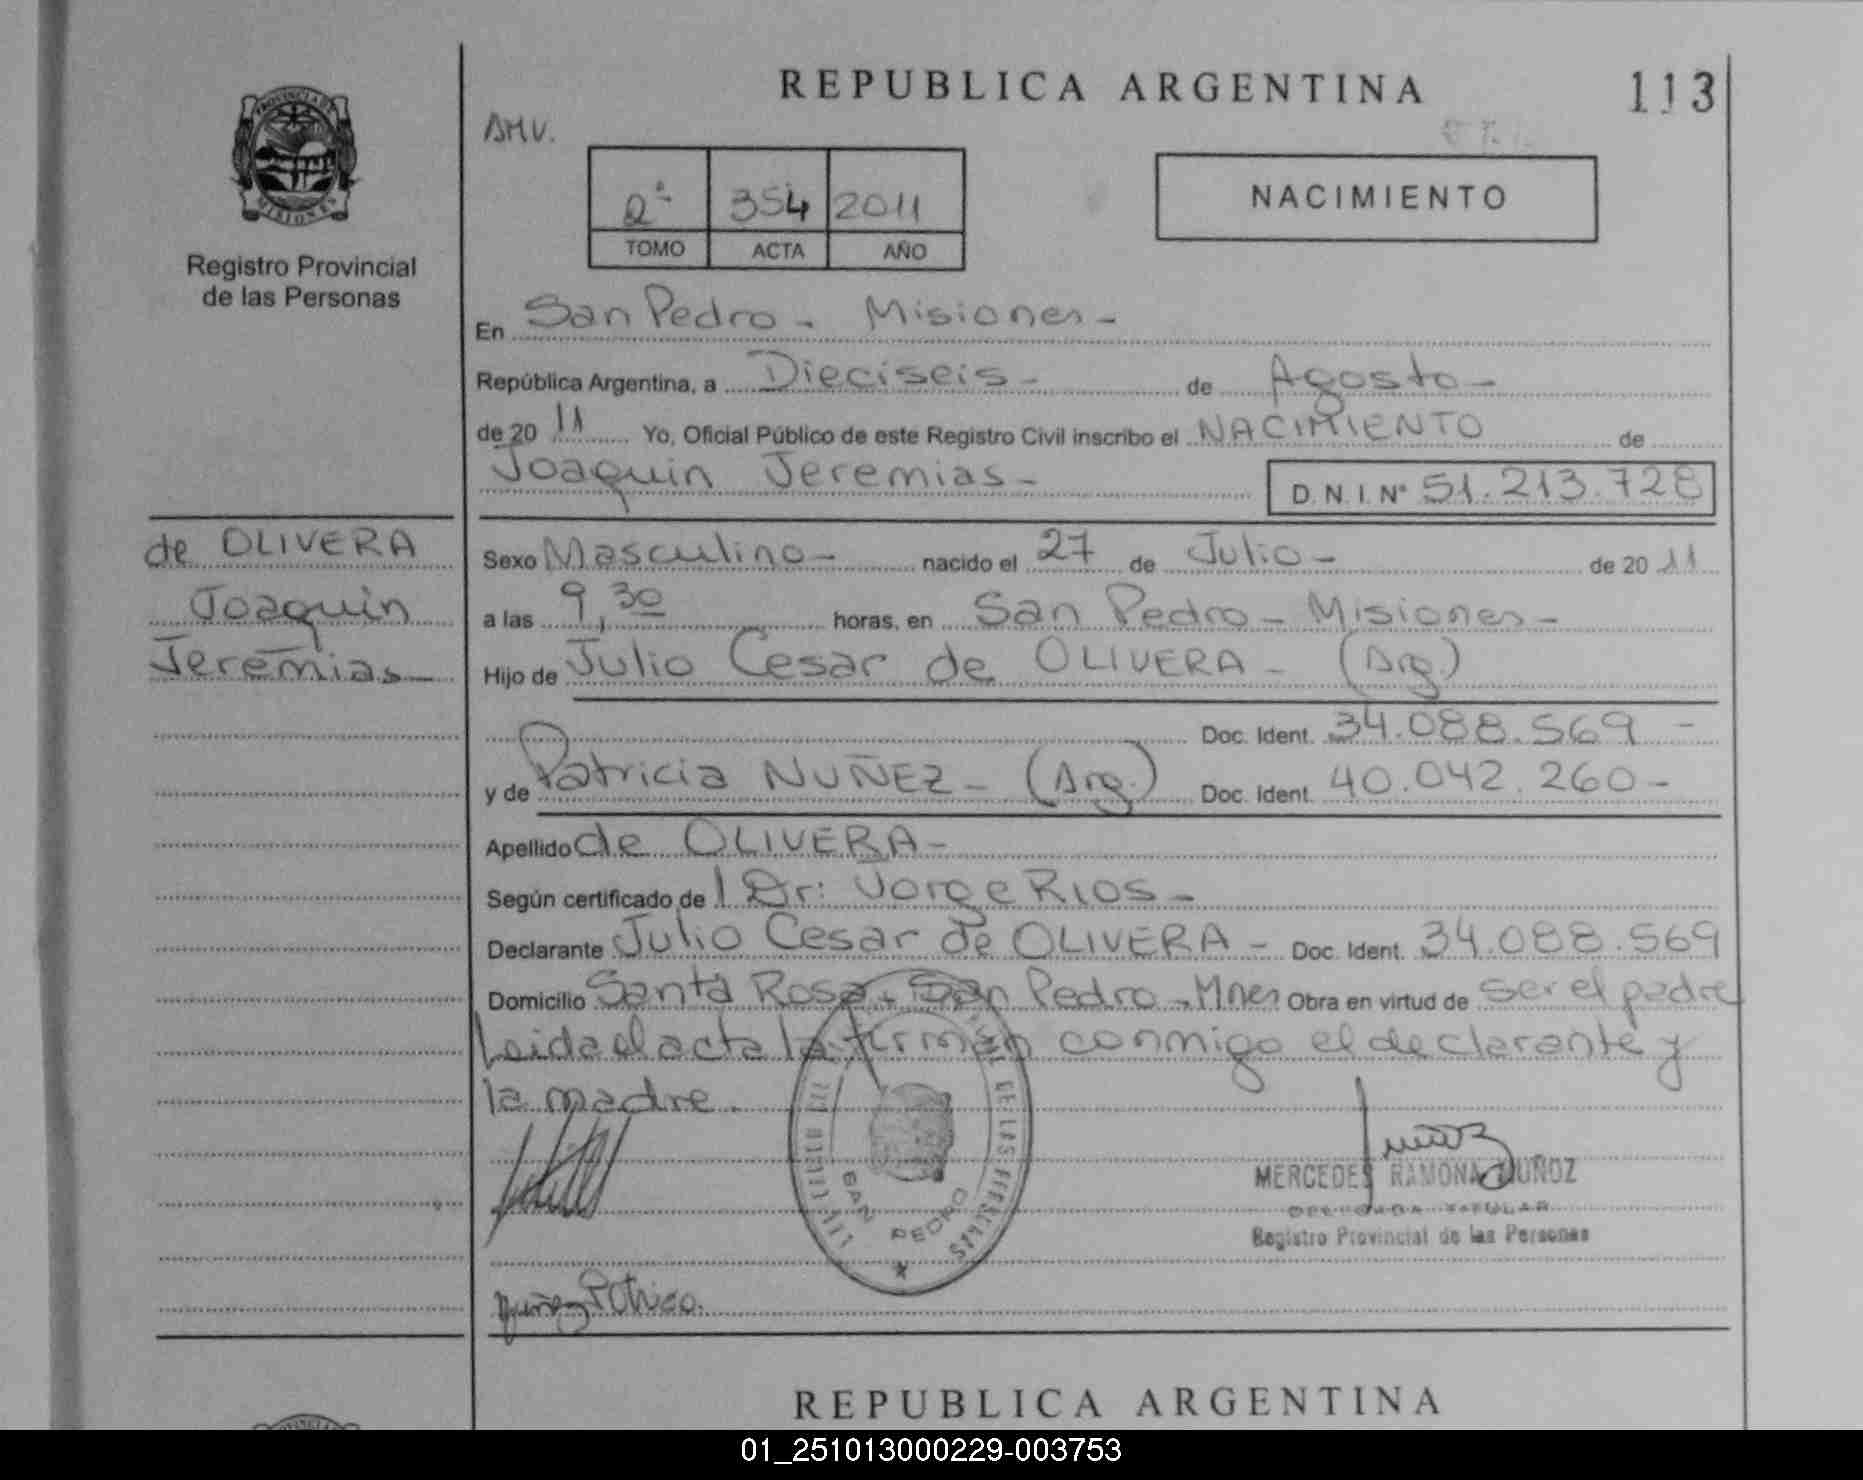 REPUBLICA ARGENTINA
113
PROVINCIA DE
MISIONES
Registro Provincial
de las Personas
AMV.
2º 354 2011
TOMO ACTA AÑO
NACIMIENTO
En San Pedro - Misiones -
República Argentina, a Dieciseis - de Agosto -
de 20 11 Yo, Oficial Público de este Registro Civil inscribo el NACIMIENTO de
Joaquin Jeremias - D.N.I. Nº 51.213.728
de OLIVERA
Joaquin
Jeremias -
Sexo Masculino - nacido el 27 de Julio - de 20 11
a las 9,30 horas, en San Pedro - Misiones -
Hijo de Julio Cesar de OLIVERA - (Arg.)
Doc. Ident. 34.088.569 -
y de Patricia NUÑEZ - (Arg.) Doc. Ident. 40.042.260 -
Apellido de OLIVERA -
Según certificado de l Dr: Jorge Rios -
Declarante Julio Cesar de OLIVERA - Doc. Ident. 34.088.569
Domicilio Santa Rosa - San Pedro - Mnes Obra en virtud de ser el padre
Leida el acta la firman conmigo el declarante y
la madre.
DE LAS PERSONAS
SAN PEDRO
MERCEDES RAMONA MUÑOZ
DELEGADA TITULAR
Registro Provincial de las Personas
Nuñez Patricia.
REPUBLICA ARGENTINA
01_251013000229-003753